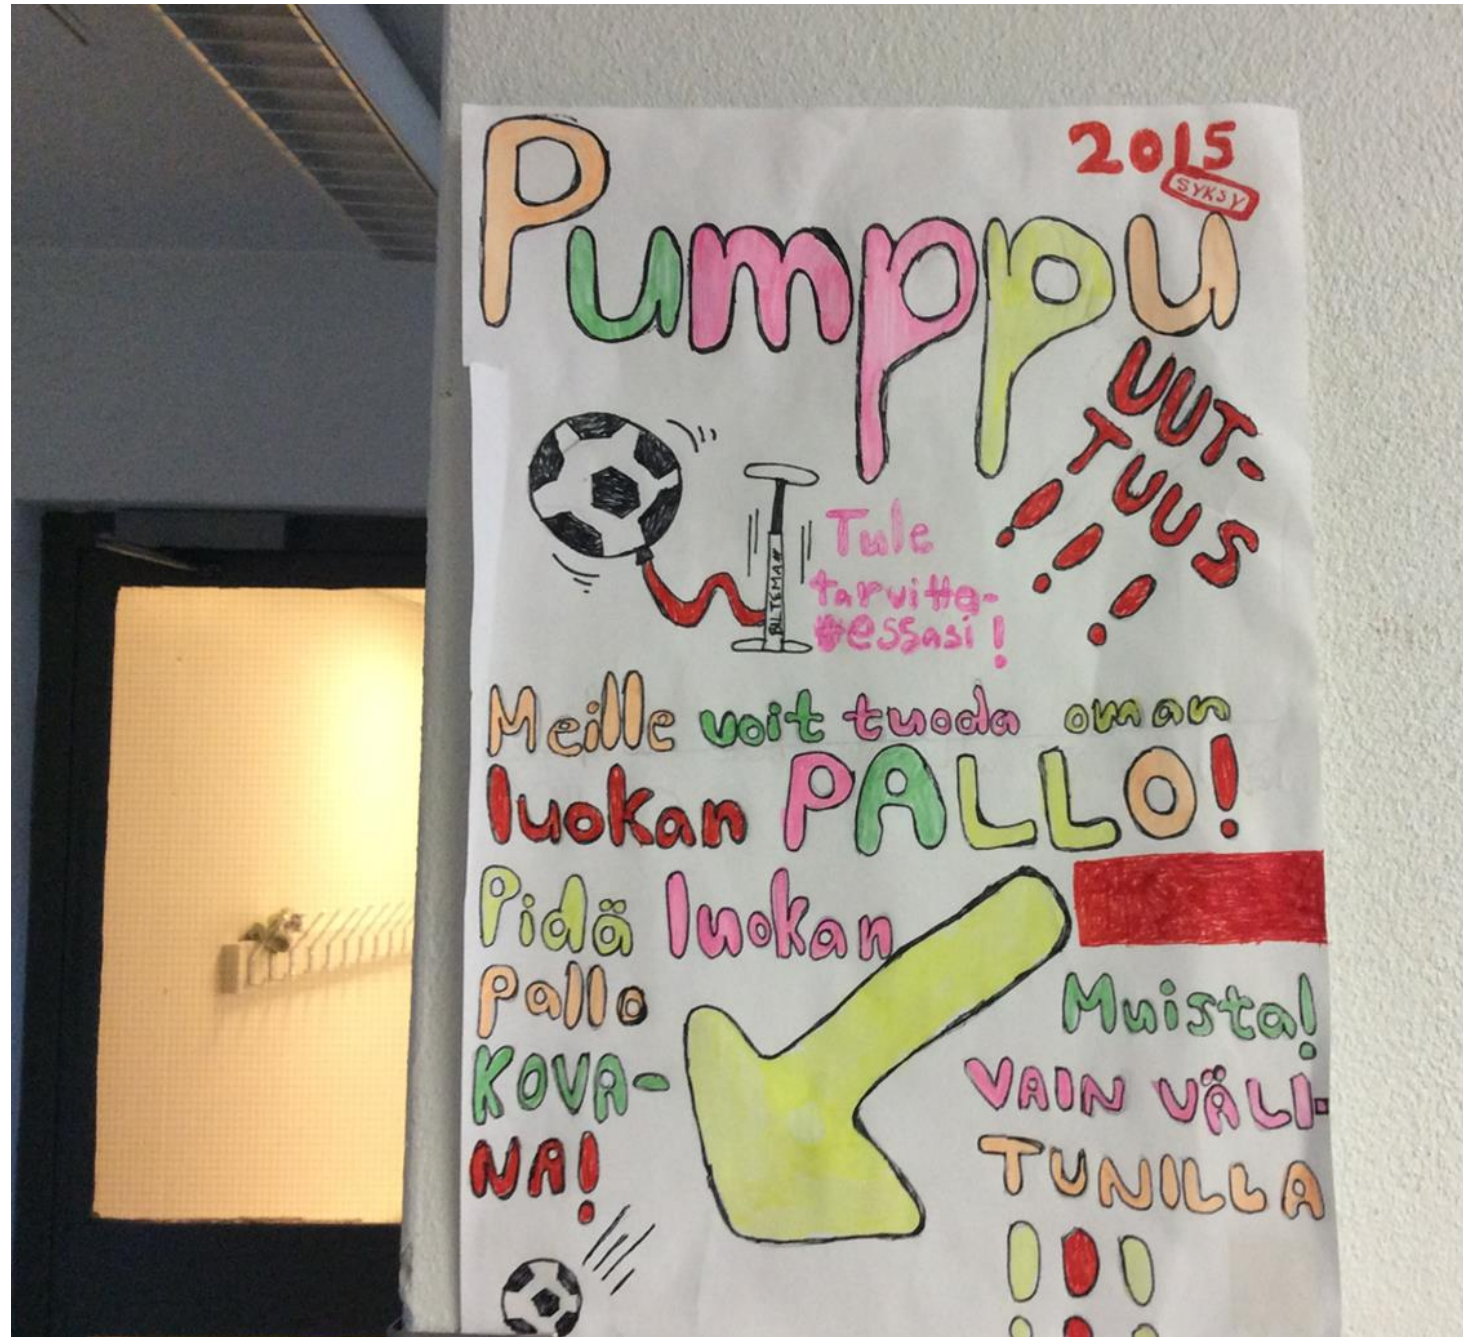 2015
SYKSY
Pumppu
UUT-
TUUS
!!!
BILTEMA
Tule
tarvitta-
essasi!
Meille voit tuoda oman
luokan PALLO!
Pidä luokan
Pallo
KOVA-
NA!
Muista!
VAIN VÄLI-
TUNILLA
!!!